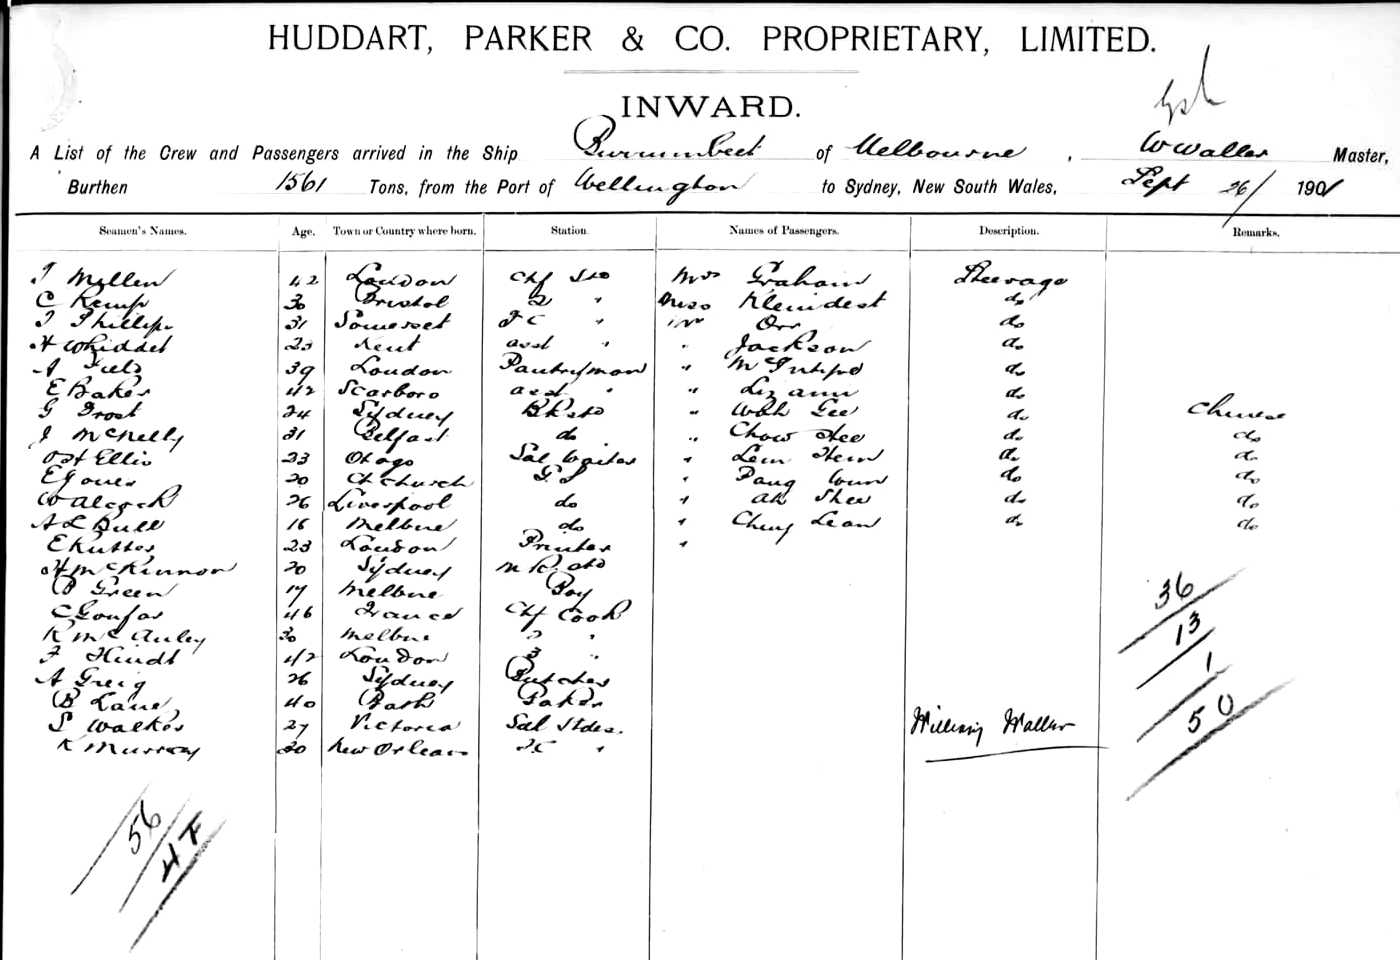 HUDDART, PARKER & CO. PROPRIETARY, LIMITED.
INWARD.
A List of the Crew and Passengers arrived in the Ship Burrumbeet of Melbourne, W Waller Master,
Burthen 1561 Tons, from the Port of Wellington to Sydney, New South Wales, Sept 26/ 1901
Seamen's Names. Age. Town or Country where born. Station. Names of Passengers. Description. Remarks.
Mellen 42 London Chf Std Mrs Graham Steerage
C Kemp 30 Bristol 2 " Miss Kleindest do
Phillips 31 Somerset " Mr Orr do
H Whiddet 23 Kent asst " " Jackson do
A 39 London Pantryman " do
E Baker 42 Scarboro asst " " do
G Frost 24 Sydney " Wah Gee do Chinese
J McNelly 31 Belfast do " Chow Hee do do
Ellis 23 Otago Sal Waiter " Lem do do
E Jones 20 Ch Church G.S " Pang do do
W Alcock 26 Liverpool do " Ah Shee do do
A L Bull 16 Melbne do " Chung Lean do do
E Rutter 23 London Printer "
H McKinnon 20 Sydney
B Green 17 Melbne Boy
C 46 France Chf Cook
R McAuley 30 Melbne 2 "
F Hindt 42 London 3 "
A Greig 26 Sydney Butcher
B Lane 40 Bath Baker
S Walker 27 Victoria Sal Stdes.
K Murray 30 New Orleans "
William Waller
36
13
1
50
56
4 F